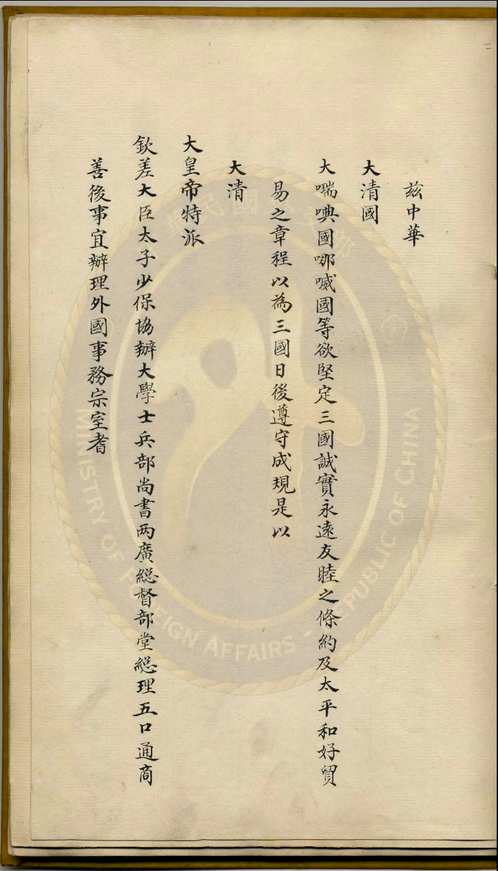 茲中華
大清國
大喘㖿國哪噉國等欲堅定三國誠實永遠友睦之條約及太平和好貿
易之章程以為三國日後遵守成規是以
大清
大皇帝特派
欽差大臣太子少保協辦大學士兵部尚書兩廣總督部堂總理五口通商
善後事宜辦理外國事務宗室耆
MINISTRY OF FOREIGN AFFAIRS - REPUBLIC OF CHINA